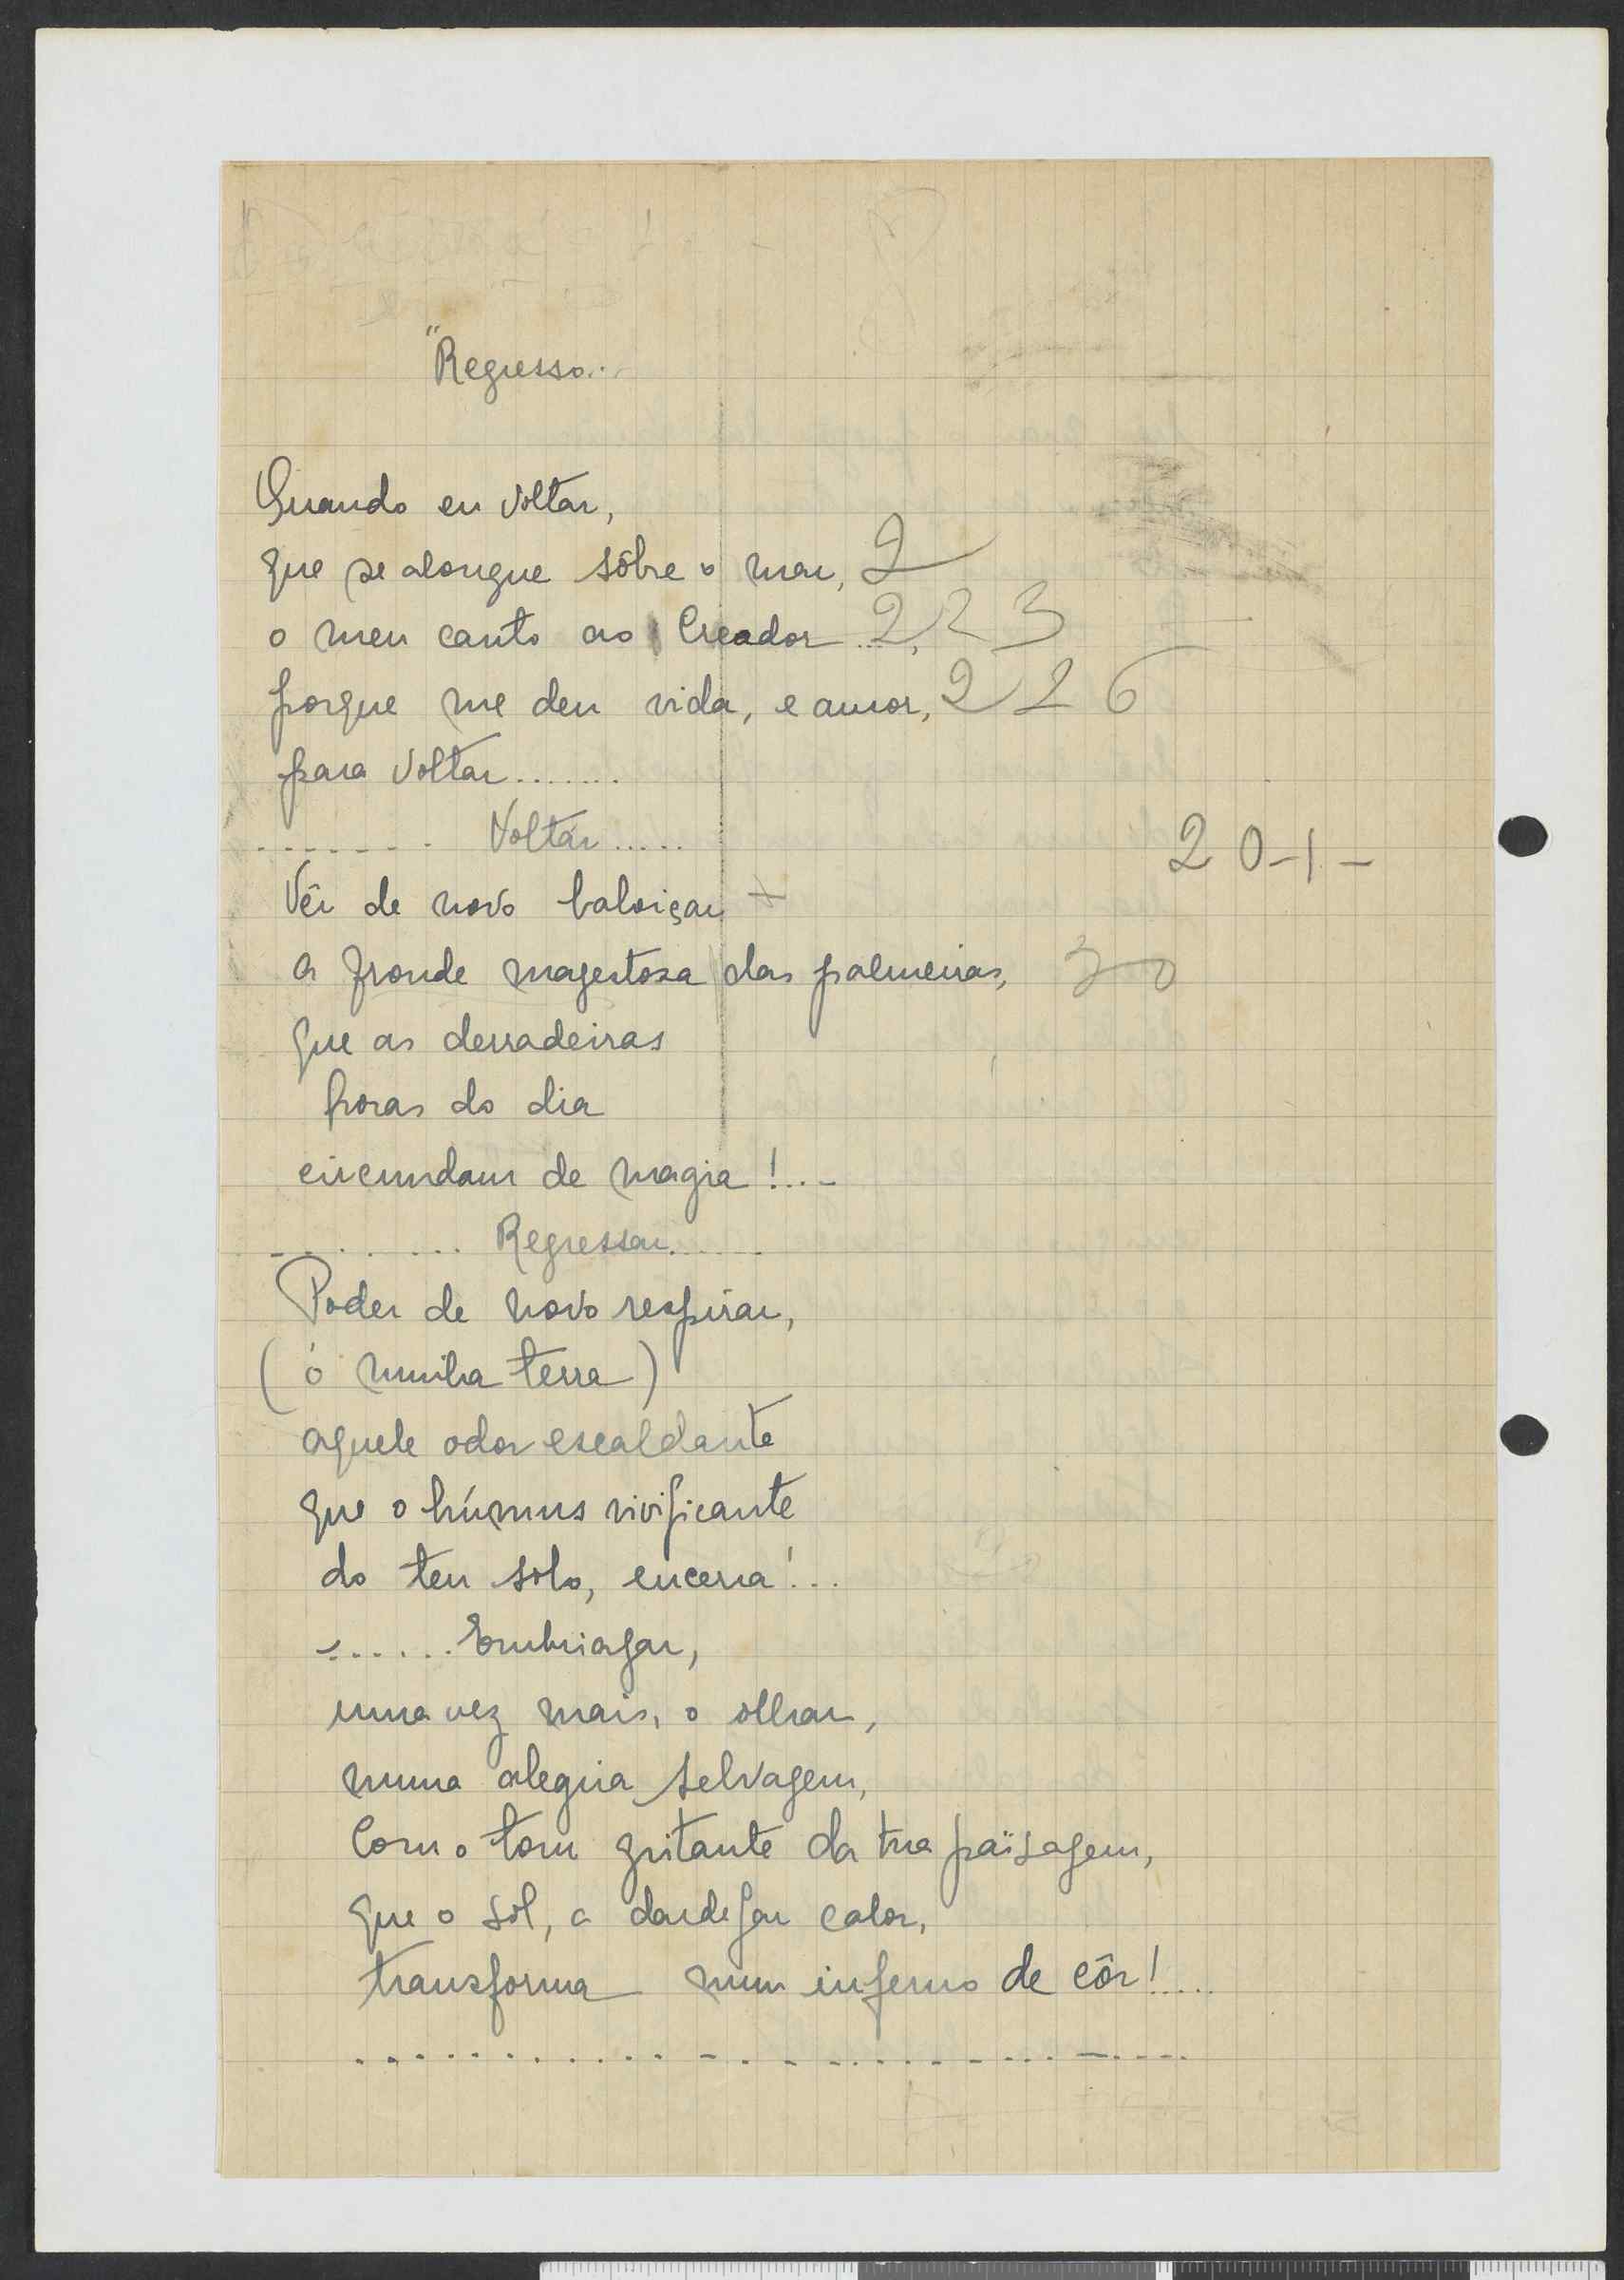 "Regresso..
Quando eu voltar,
que se alongue sôbre o mar, 2
o meu canto ao Creador...., 2 2 3
porque me deu vida, e amor, 2 2 6
para voltar.......
....... Voltar.....
20-1-
Vêr de novo baloiçar +
a fronde magestosa das palmeiras, 30
que as derradeiras
horas do dia
circundam de magia!...
........ Regressar......
Poder de novo respirar,
(ó minha terra)
aquele odor escaldante
que o húmus vivificante
do teu solo, encerra!...
....... Embriagar,
uma vez mais, o olhar,
numa alegria selvagem,
Com o tom gritante da tua païsagem,
que o sol, a dardejar calor,
transforma num inferno de côr!.....
............................